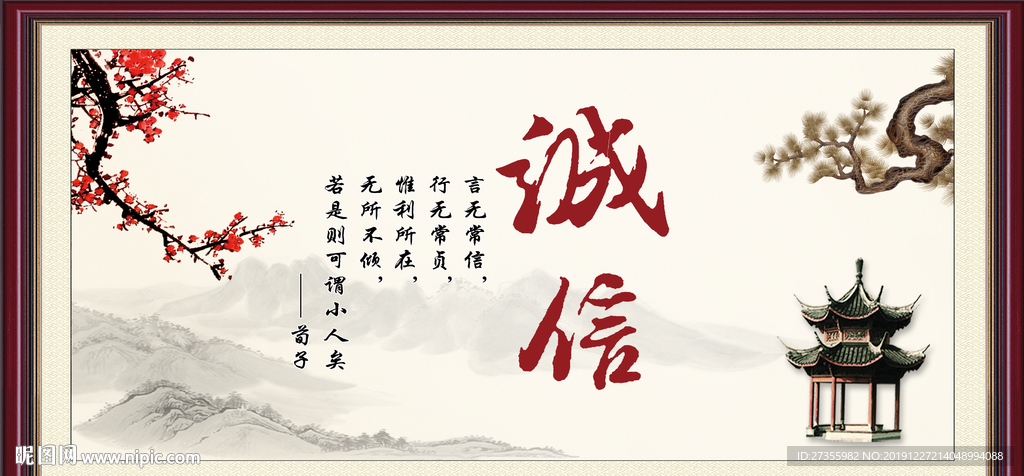 誠信
言无常信，
行无常贞，
惟利所在，
无所不倾，
若是则可谓小人矣
——荀子
昵图网 www.nipic.com
ID:27355982 NO:20191227214048994088